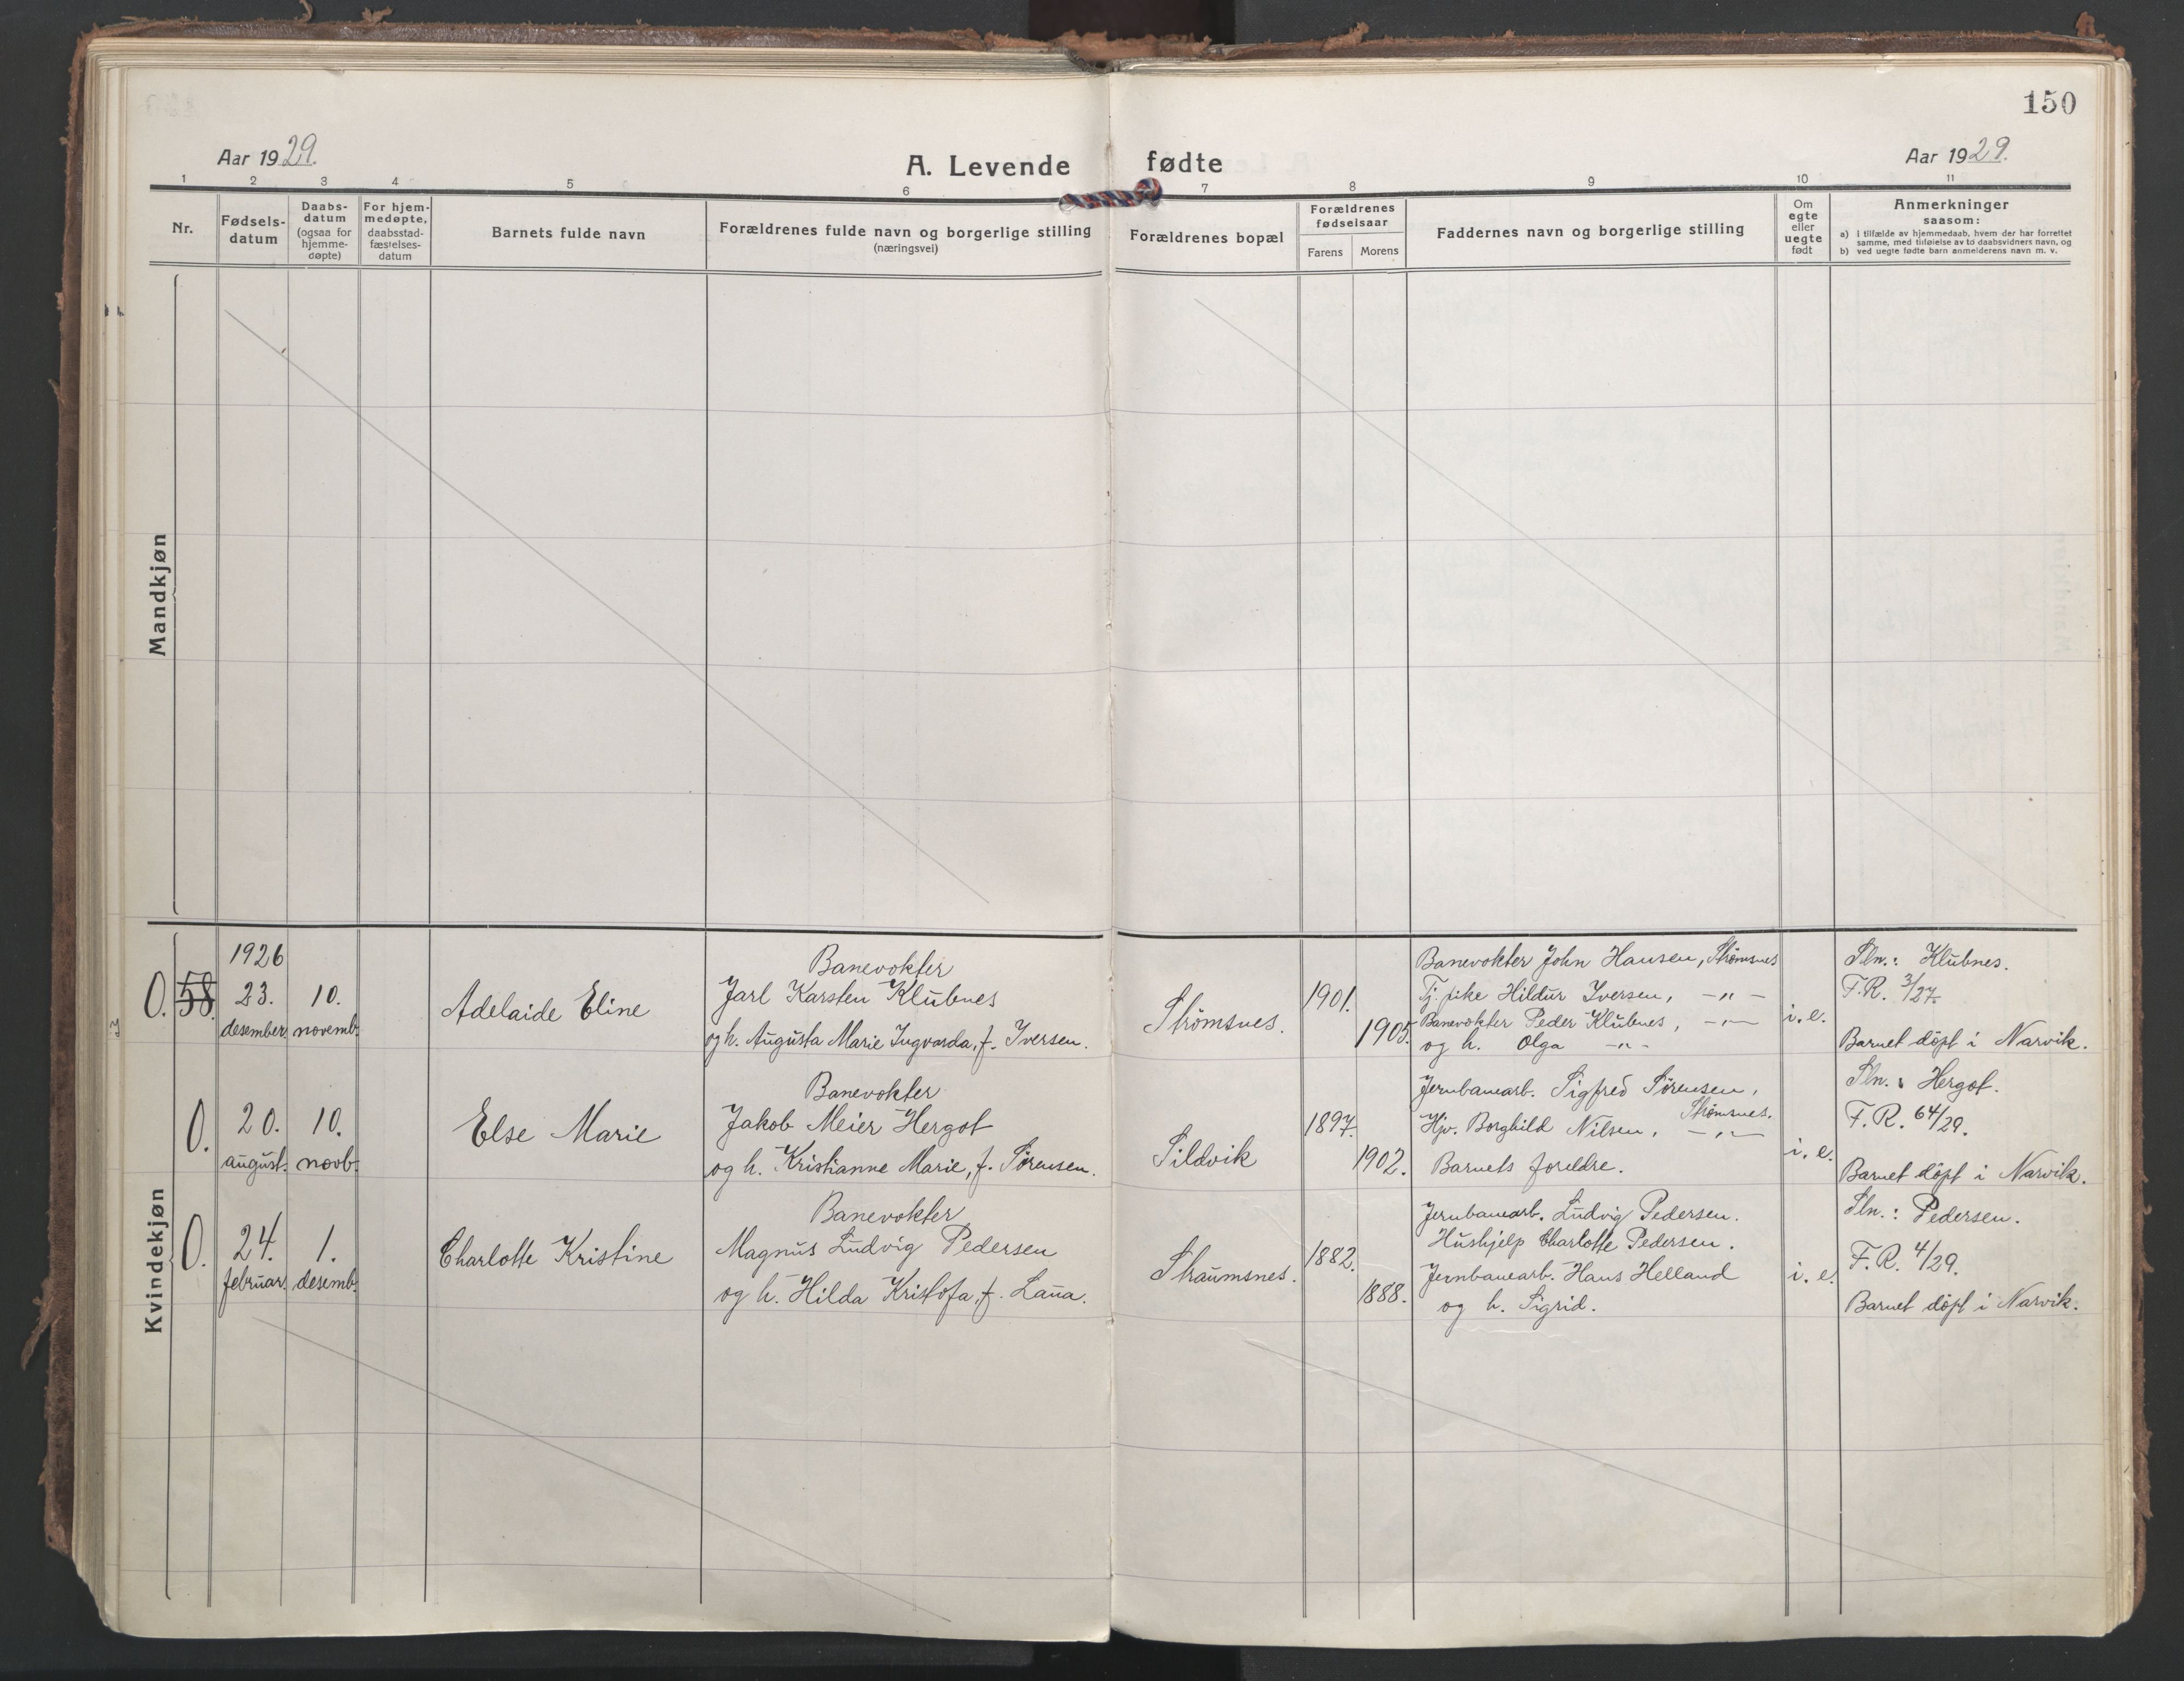 150
Aar 1929.
A. Levende fødte
Aar 1929.
1 2 3 4 5 6 7 8 9 10 11
Nr.
Fødsels-
datum
Daabs-
datum
(ogsaa for
hjemme-
døpte)
For hjem-
medøpte,
daabsstad-
fæstelses-
datum
Barnets fulde navn
Forældrenes fulde navn og borgerlige stilling
(næringsvei)
Forældrenes bopæl
Forældrenes
fødselsaar
Farens Morens
Faddernes navn og borgerlige stilling
Om
egte
eller
uegte
født
Anmerkninger
saasom:
a) i tilfælde av hjemmedaab, hvem der har forrettet
samme, med tilføielse av to daabsvidners navn, og
b) ved uegte fødte barn anmelderens navn m. v.
Mandkjøn
Kvindekjøn
O. 58.
1926
23.
desember
10.
novemb.
Adelaide Eline
Banevokter
Jarl Karsten Klubnes
og h. Augusta Marie Ingvarda, f. Iversen.
Strømsnes.
1901.
1905.
Banevokter John Hansen, Strømsnes
Tj. pike Hildur Iversen, —„—
Banevokter Peder Klubnes, —„—
og h. Olga —„—
i. e.
Sln.: Klubnes.
F.R. 3/27.
Barnet döpt i Narvik.
O.
20.
august.
10.
novb.
Else Marie
Banevokter
Jakob Meier Hergot
og h. Kristianne Marie, f. Sørensen.
Sildvik
1897.
1902.
Jernbanearb. Sigfred Sørensen,
Strømsnes.
Hjv. Borghild Nilsen, —„—
Barnets foreldre.
i. e.
Sln.: Hergot.
F. R. 64/29.
Barnet döpt i Narvik.
O.
24.
februar.
1.
desemb.
Charlotte Kristine
Banevokter
Magnus Ludvig Pedersen
og h. Hilda Kristofa, f. Laua.
Straumsnes.
1882.
1888.
Jernbanearb. Ludvig Pedersen.
Hushjelp Charlotte Pedersen.
Jernbanearb. Hans Helland
og h. Sigrid.
i. e.
Sln.: Pedersen.
F. R. 4/29.
Barnet döpt i Narvik.